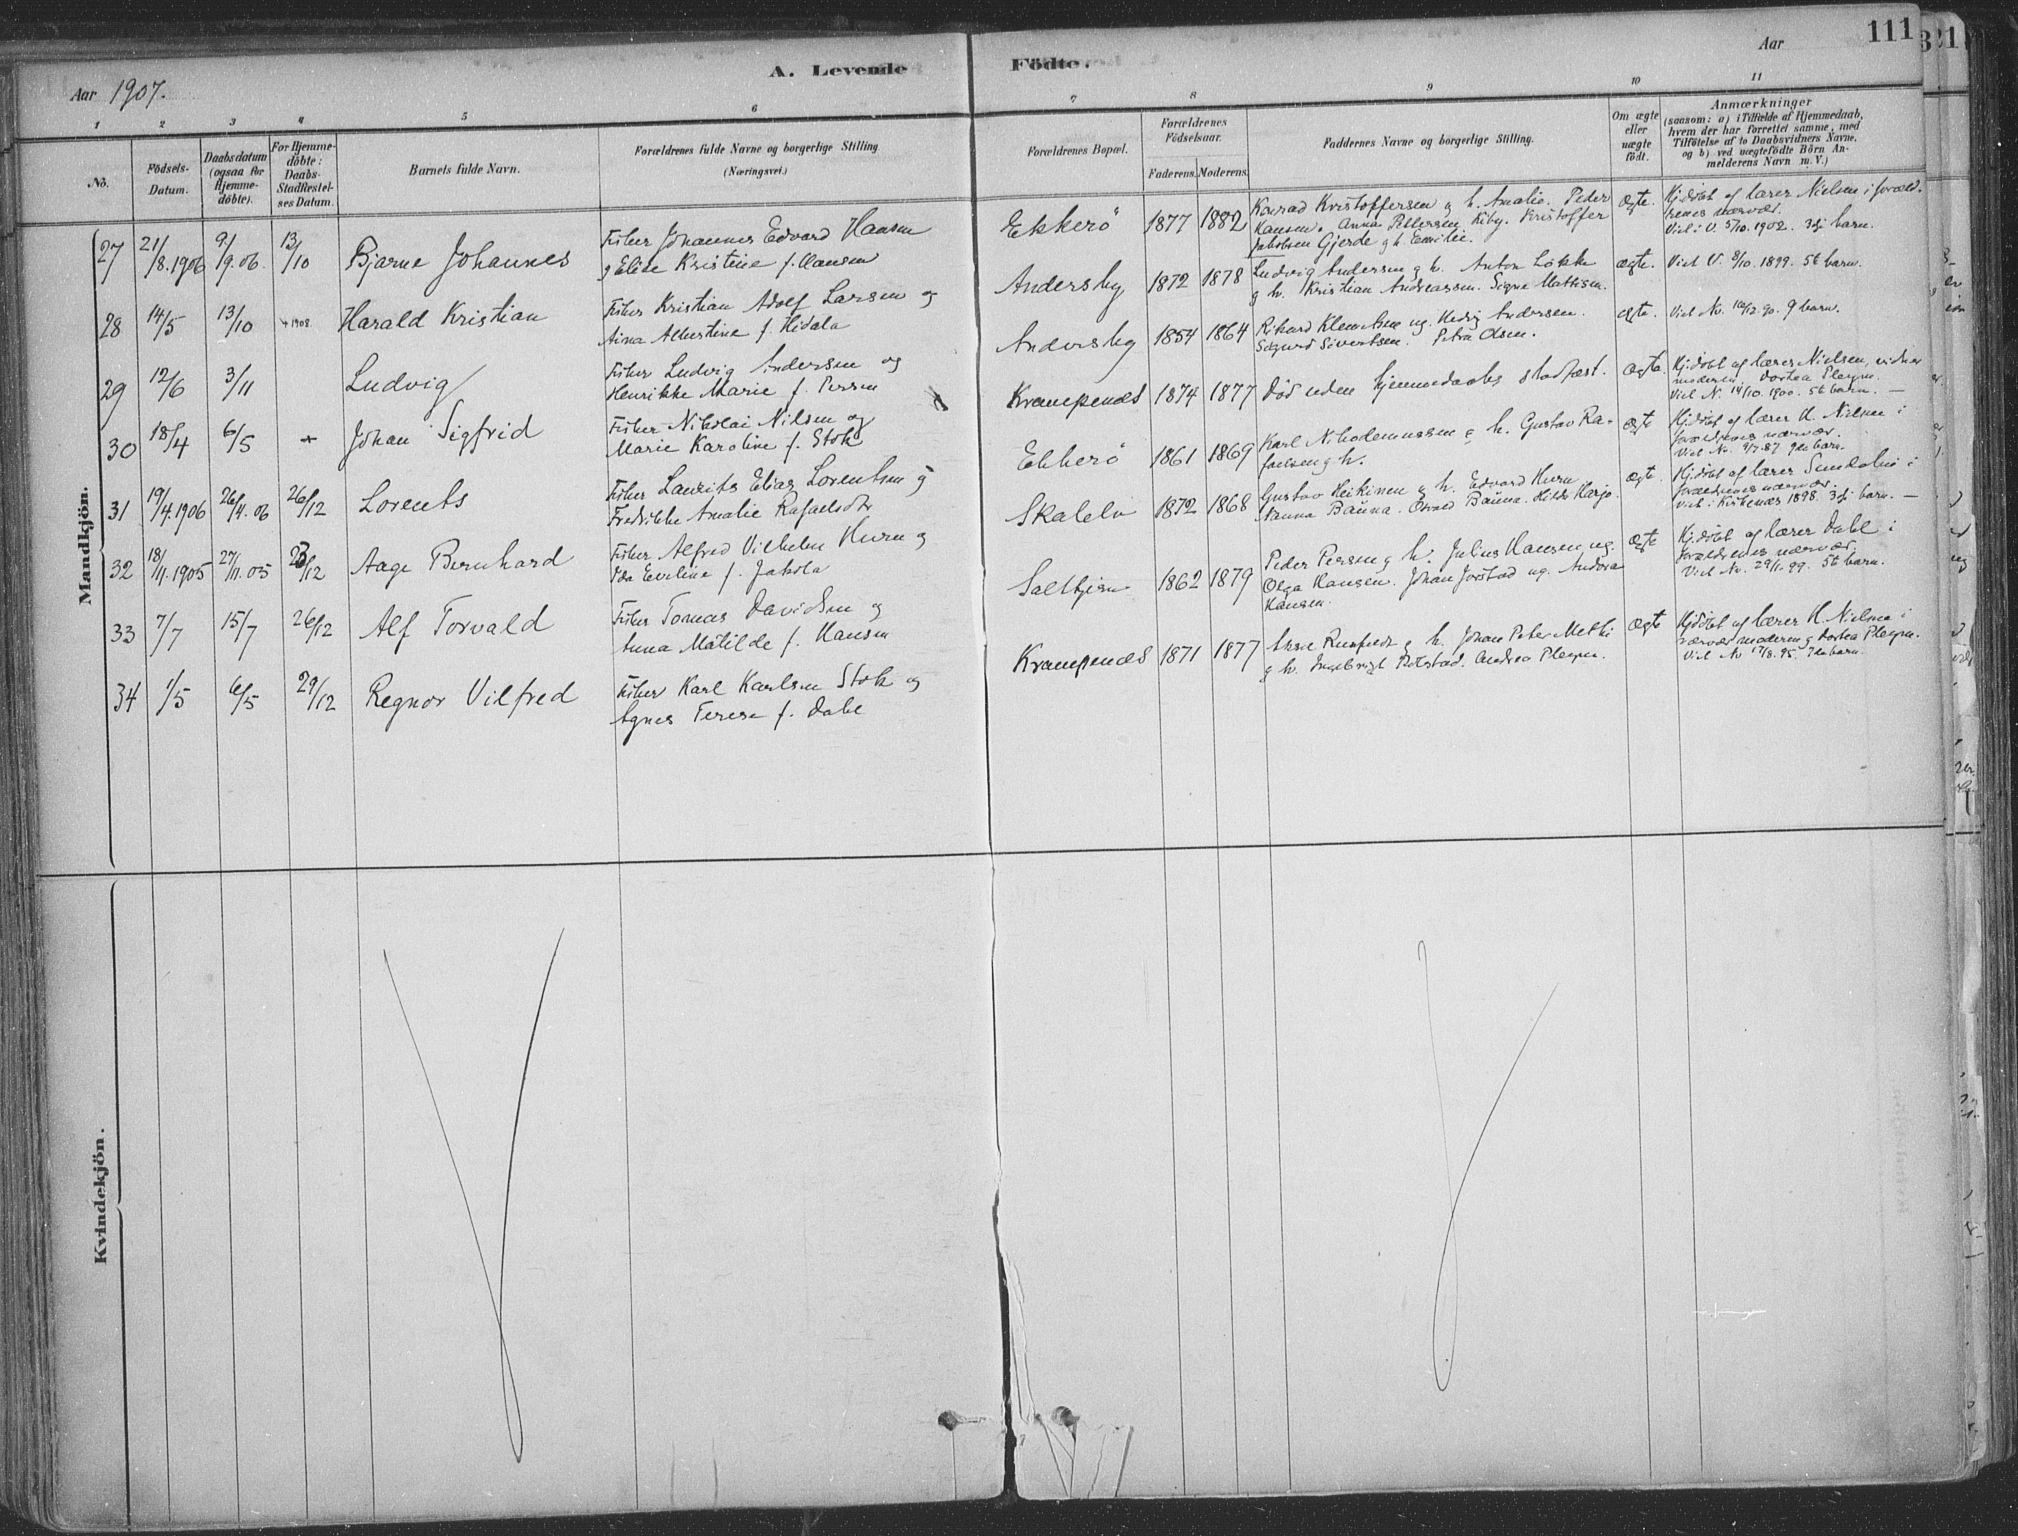 111
Aar 1907.
A. Levende Födte.
Aar
1 2 3 4 5 6 7 8 9 10 11
No.
Födsels-Datum.
Daabsdatum (ogsaa for Hjemme-döbte).
For Hjemme-döbte: Daabs-Stadfæstel-ses Datum.
Barnets fulde Navn.
Forældrenes fulde Navne og borgerlige Stilling (Næringsvei.)
Forældrenes Bopæl.
Forældrenes Födselsaar.
Faderens. Moderens.
Faddernes Navne og borgerlige Stilling.
Om ægte eller uægte födt.
Anmærkninger
(saasom: a) i Tilfælde af Hjemmedaab,
hvem der har forrettet samme, med
Tilföielse af to Daabsvidners Navne,
og b) ved uægtefödte Börn An-
melderens Navn m. V.)
Mandkjön.
27 21/8.1906 9/9.06. 13/10 Bjarne Johannes
Fisker Johannes Edvard Hansen
g Elise Kristine f. Hansen
Ekkerö 1877 1882
Konrad Kristoffersen g h. Amalie. Peder
Hansen. Anna Pettersen Kiby. Kristoffer
Jakobsen Gjerde g h. Emilie.
ægte.
Hj.döbt af lærer Nielsen i foræld-
renes nærvær.
Viet i V. 5/10.1902. 3dj barn.
28 14/5 13/10 Harald Kristian
Fisker Kristian Adolf Larsen og
Aina Albertine f. Hidala
Andersby 1872 1878
Ludvig Andersen g h. Anton Lökke
g h. Kristian Andreassen. Signe Mattisen.
ægte.
Viet V. 8/10.1899. 5t barn.
29 12/6 3/11 1908 Ludvig
Fisker Ludvig Andersen og
Henrikke Marie f. Persen
Andersby 1854 1864
Rikard Klemetsen ug. Hedvig Andersen.
Sigurd Sivertsen. Petra Olsen.
ægte.
Viet No. 10/12.90. 9 barn.
30 18/4 6/5 + Johan Sigfrid
Fisker Nikolai Nilsen og
Marie Karoline f. Stok
Krampenæs 1874 1877
Död uden hjemmedaabs stadfæst.
ægte.
Hj.döbt af lærer Nielsen, vidner
moderen, Dortea Pleym.
Viet N. 14/10.1900. 5t barn. —
31 19/4.1906 26/4.06 26/12 Lorents
Fisker Laurits Elias Lorentsen g
Fredrikke Amalie Rafaelsdtr
Ekkerö 1861 1869
Karl Nikodemussen g h. Gustav Ra-
faelsen g h.
ægte
Hj.döbt af lærer H. Nielsen i
forældrenes nærvær.
Viet No. 9/7.87. 9de barn.
32 18/11.1905 27/11.05 23/12 Aage Bernhard
Fisker Alfred Vilhelm Hurn og
Ida Eveline f. Jakola
Skalelv 1872 1868
Gustav Heikinen g h. Edvard Hurn
Nanna Bauna. Osvald Bauna. Hilda Harjo.
ægte.
Hj.döbt af lærer Sundelin i
forældrenes nærvær.
Viet i Kirkenæs 1898. 3dj barn. —
33 7/7 15/7 26/12 Alf Torvald
Fisker Tomas Davidsen og
Anna Matilde f. Hansen
Saltkjern 1862 1879
Peder Persen g h. Julius Hansen, ug.
Olga Hansen. Johan Jorstad ug. Andrea
Hansen.
ægte
Hj.döbt af lærer Dahl i
forældrenes nærvær.
Viet No. 29/1.99. 5t barn.
34 1/5 6/5 29/12 Regnor Vilfred
Fisker Karl Karlsen Stok og
Agnes Terese f. Dahl
Krampenæs 1871 1877
g h. Johan Peter Mathi
g h. Ingebrigt Andrea Pleym.
ægte
Hjdöbt af lærer H. Nielsen i
nærvær moderen g Dortea Pleym.
Viet No 17/8.95. 7de barn.
Kvindekjön.